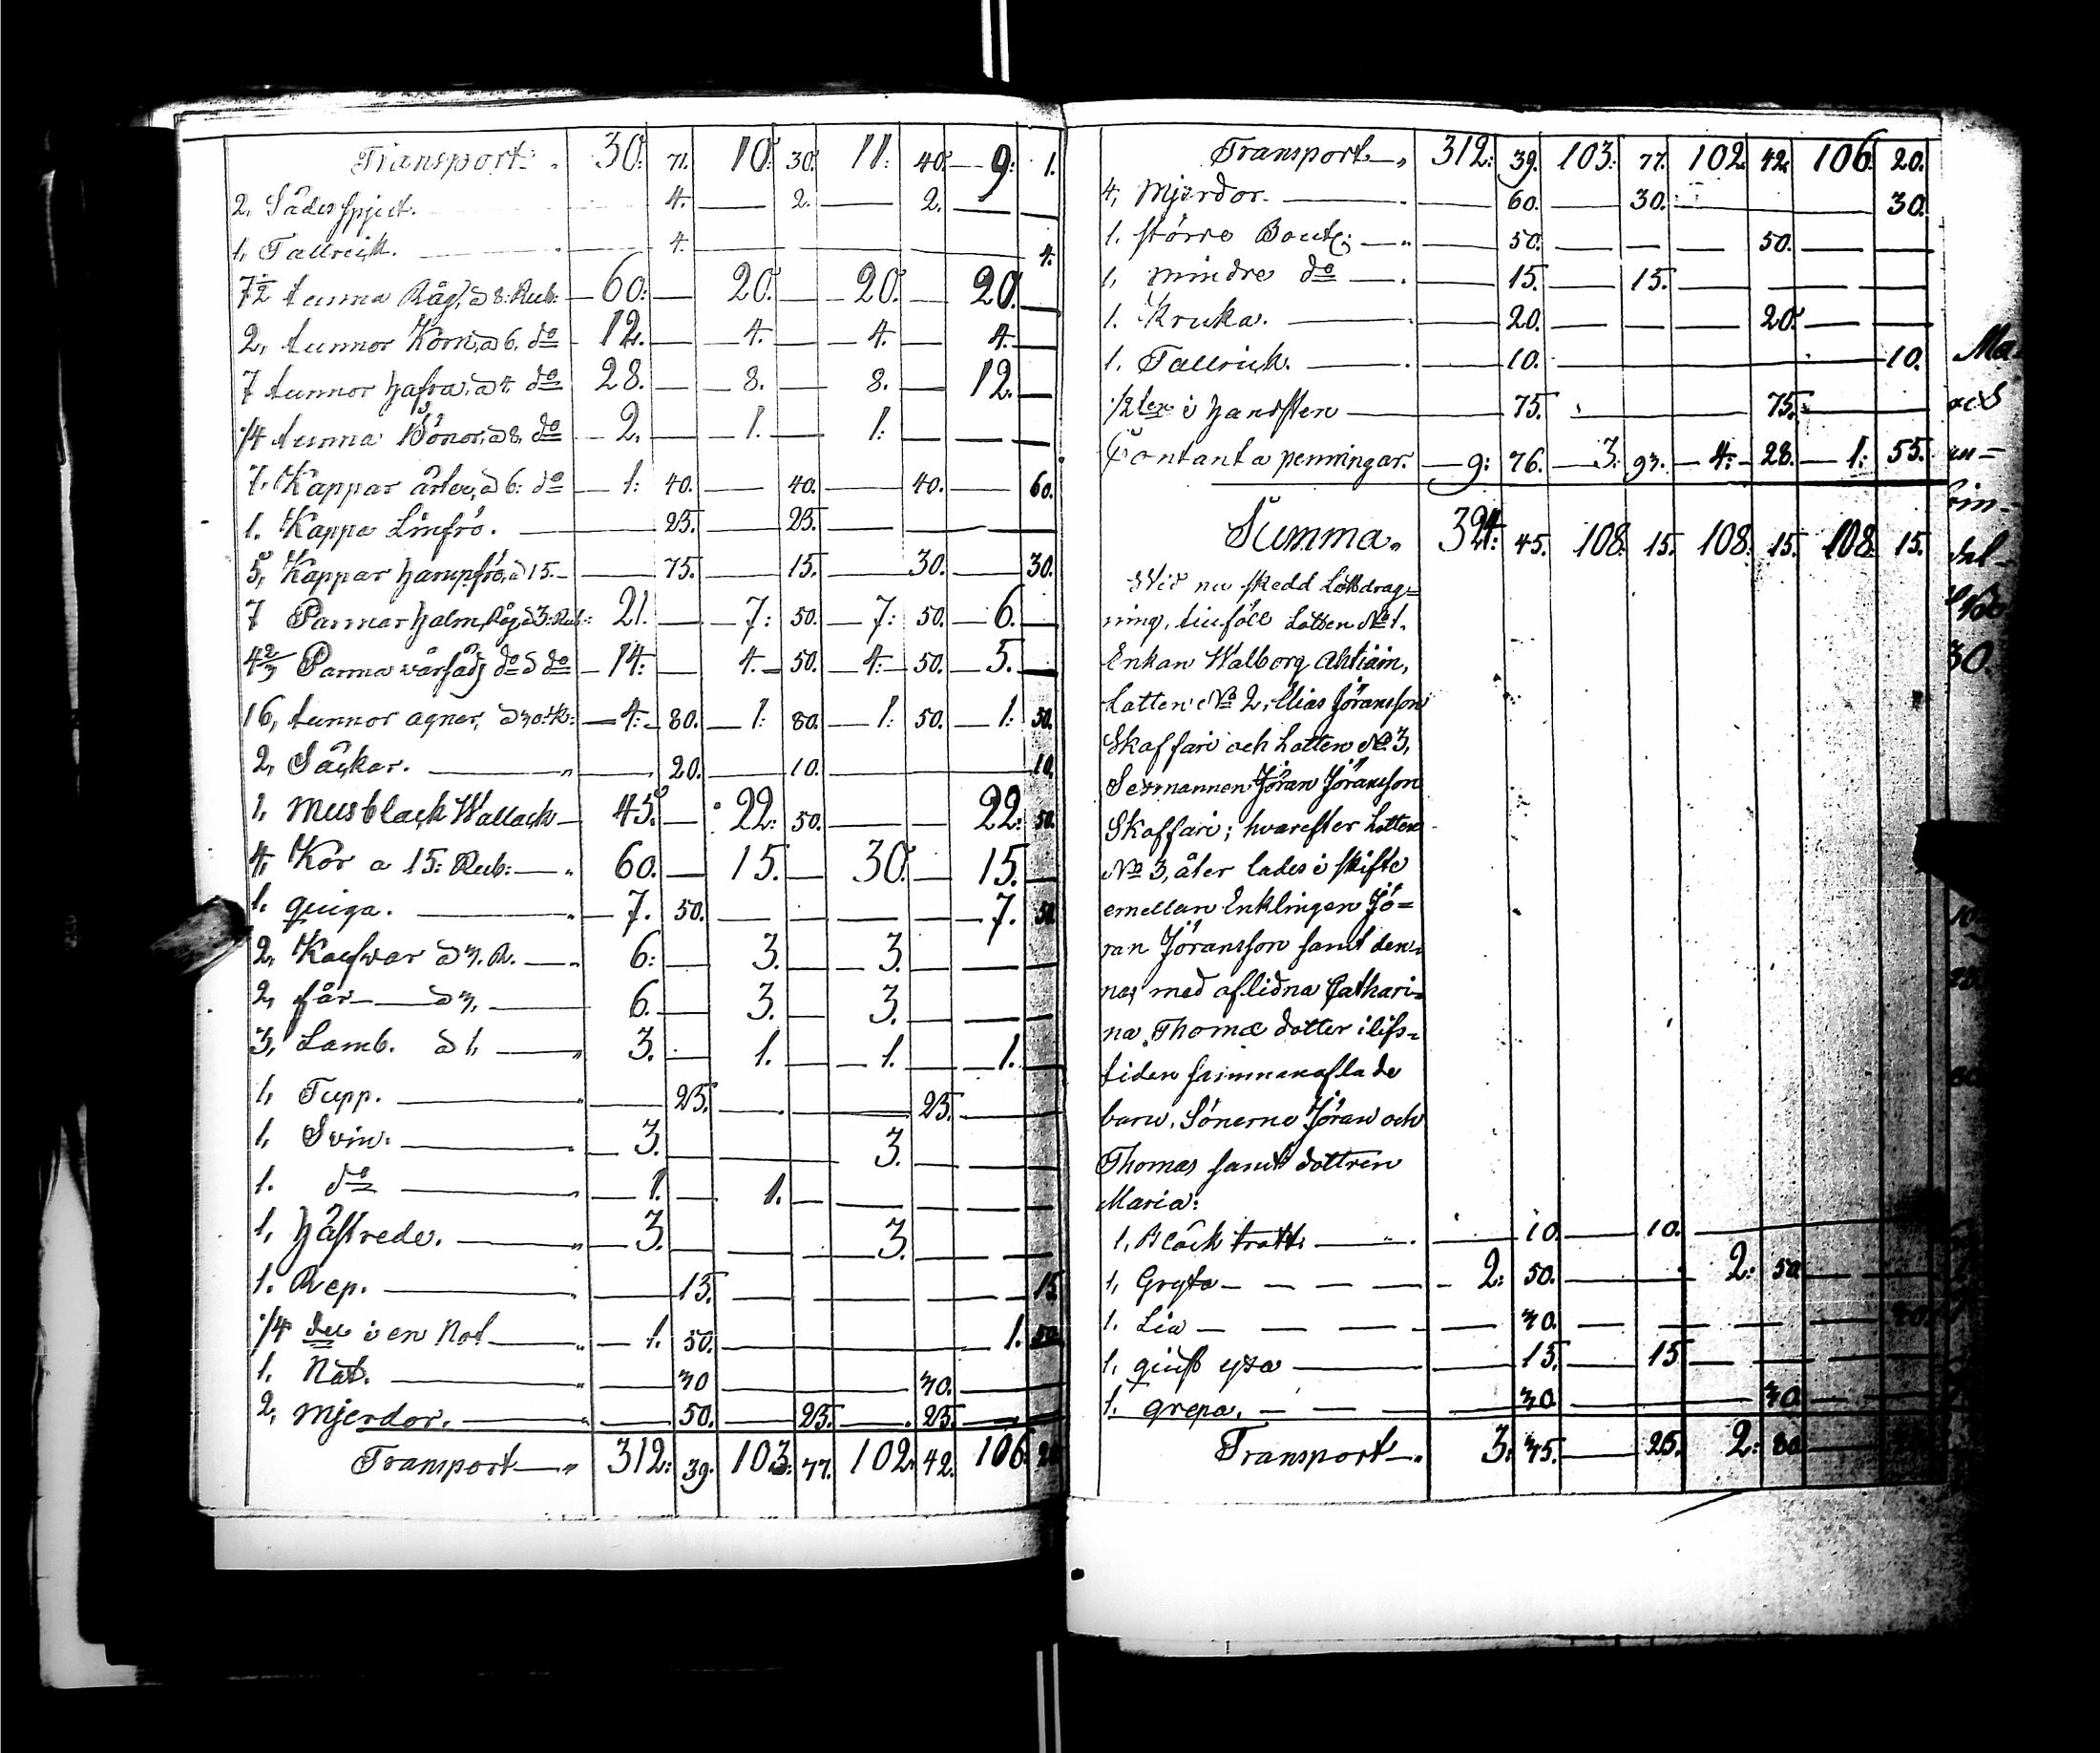 Transport. 30: 71. 10: 30. 11: 40. 9: 1.
2, Sädes 4. 2. 2.
1, Tallrick. 4. 4.
7½ tunna Råg, à 8: Rub: 60: 20. 20. 20.
2, tunnor Korn, à 6. do 12. 4. 4. 4.
7 tunnor hafra, à 4 do 28. 8. 8. 12.
1/4 tunna Bönor, à 8, do 2. 1. 1:
7, Kappar ärter, à 6: do 1: 40. 40. 40. 60.
1. Kappa Linfrö. 25. 25.
5, Kappar hampfrö, à 15. 75. 15. 30. 30.
7 Parmar halm, Råg à 3: Rub: 21. 7: 50. 7: 50. 6.
4 2/3 Parma vårsäds do à do 14: 4. 50. 4: 50. 5.
16, tunnor agner, à 30: K: 4: 80. 1: 80. 1: 50. 1: 50.
2, Säckar. 20. 10. 10.
1, Musblack Wallack 45. 22: 50. 22: 50.
4, Kor a 15: Rub: 60. 15. 30. 15.
1. quiga. 7. 50. 7. 50.
2, Kalfwar à 3. R. 6: 3. 3.
2, får à 3, 6. 3. 3.
3, Lamb. à 1, 3. 1. 1. 1.
1, Tupp. 25. 25.
1, Svin. 3. 3.
1. do 1. 1.
1, Hästrede. 3. 3.
1. Rep. 15. 15
1/4 del i en Not 1. 50. 1. 50.
1. Nät. 30 30.
2, Mjerdor. 50. 25. 25.
Transport 312: 39. 103: 77. 102: 42. 106: 20
Transport 312: 39. 103: 77. 102. 42. 106. 20.
4, Mjerdor. 60. 30. 30.
1. större Boutl: 50. 50.
1, mindre do 15. 15.
1. Kruka. 20. 20.
1. Tallrick. 10. 10.
1/2 len i 75. 75.
Contanta penningar. 9: 76. 3. 93. 4: 28. 1: 55.
Summa. 324: 45. 108. 15. 108. 15. 108. 15.
Wid nu skedd Lottdrag=
ning, tillföll Lotten No 1.
Enkan Walborg Ahtiain,
Lotten No 2, Elias Jöransson
Skaffari och Lotten No 3,
Sexmannen Jöran Jöransson
Skaffari; hvarefter Lotten
No 3, åter lades i skifte
emellan Enklingen Jö=
ran Jöransson samt den=
nes med aflidna Cathari=
na Thomæ dotter i lifs=
tiden sammanaflade
barn, Sönerne Jöran och
Thomas samt dottren
Maria:
1, Bläck tratt 10. 10.
1, Gryta 2: 50. 2: 50
1. Lia 30.
1, yxa 15. 15
1. grepa. 30 30
Transport 3: 35. 25. 2: 80